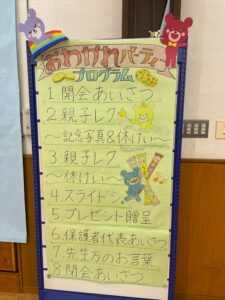 おわかれパーティー
プログラム
1.開会あいさつ
2.親子レク
～記念写真&休けい～
3.親子レク
～休けい～
4.スライドショー
5.プレゼント贈呈
6.保護者代表あいさつ
7.先生方のお言葉
8.閉会あいさつ